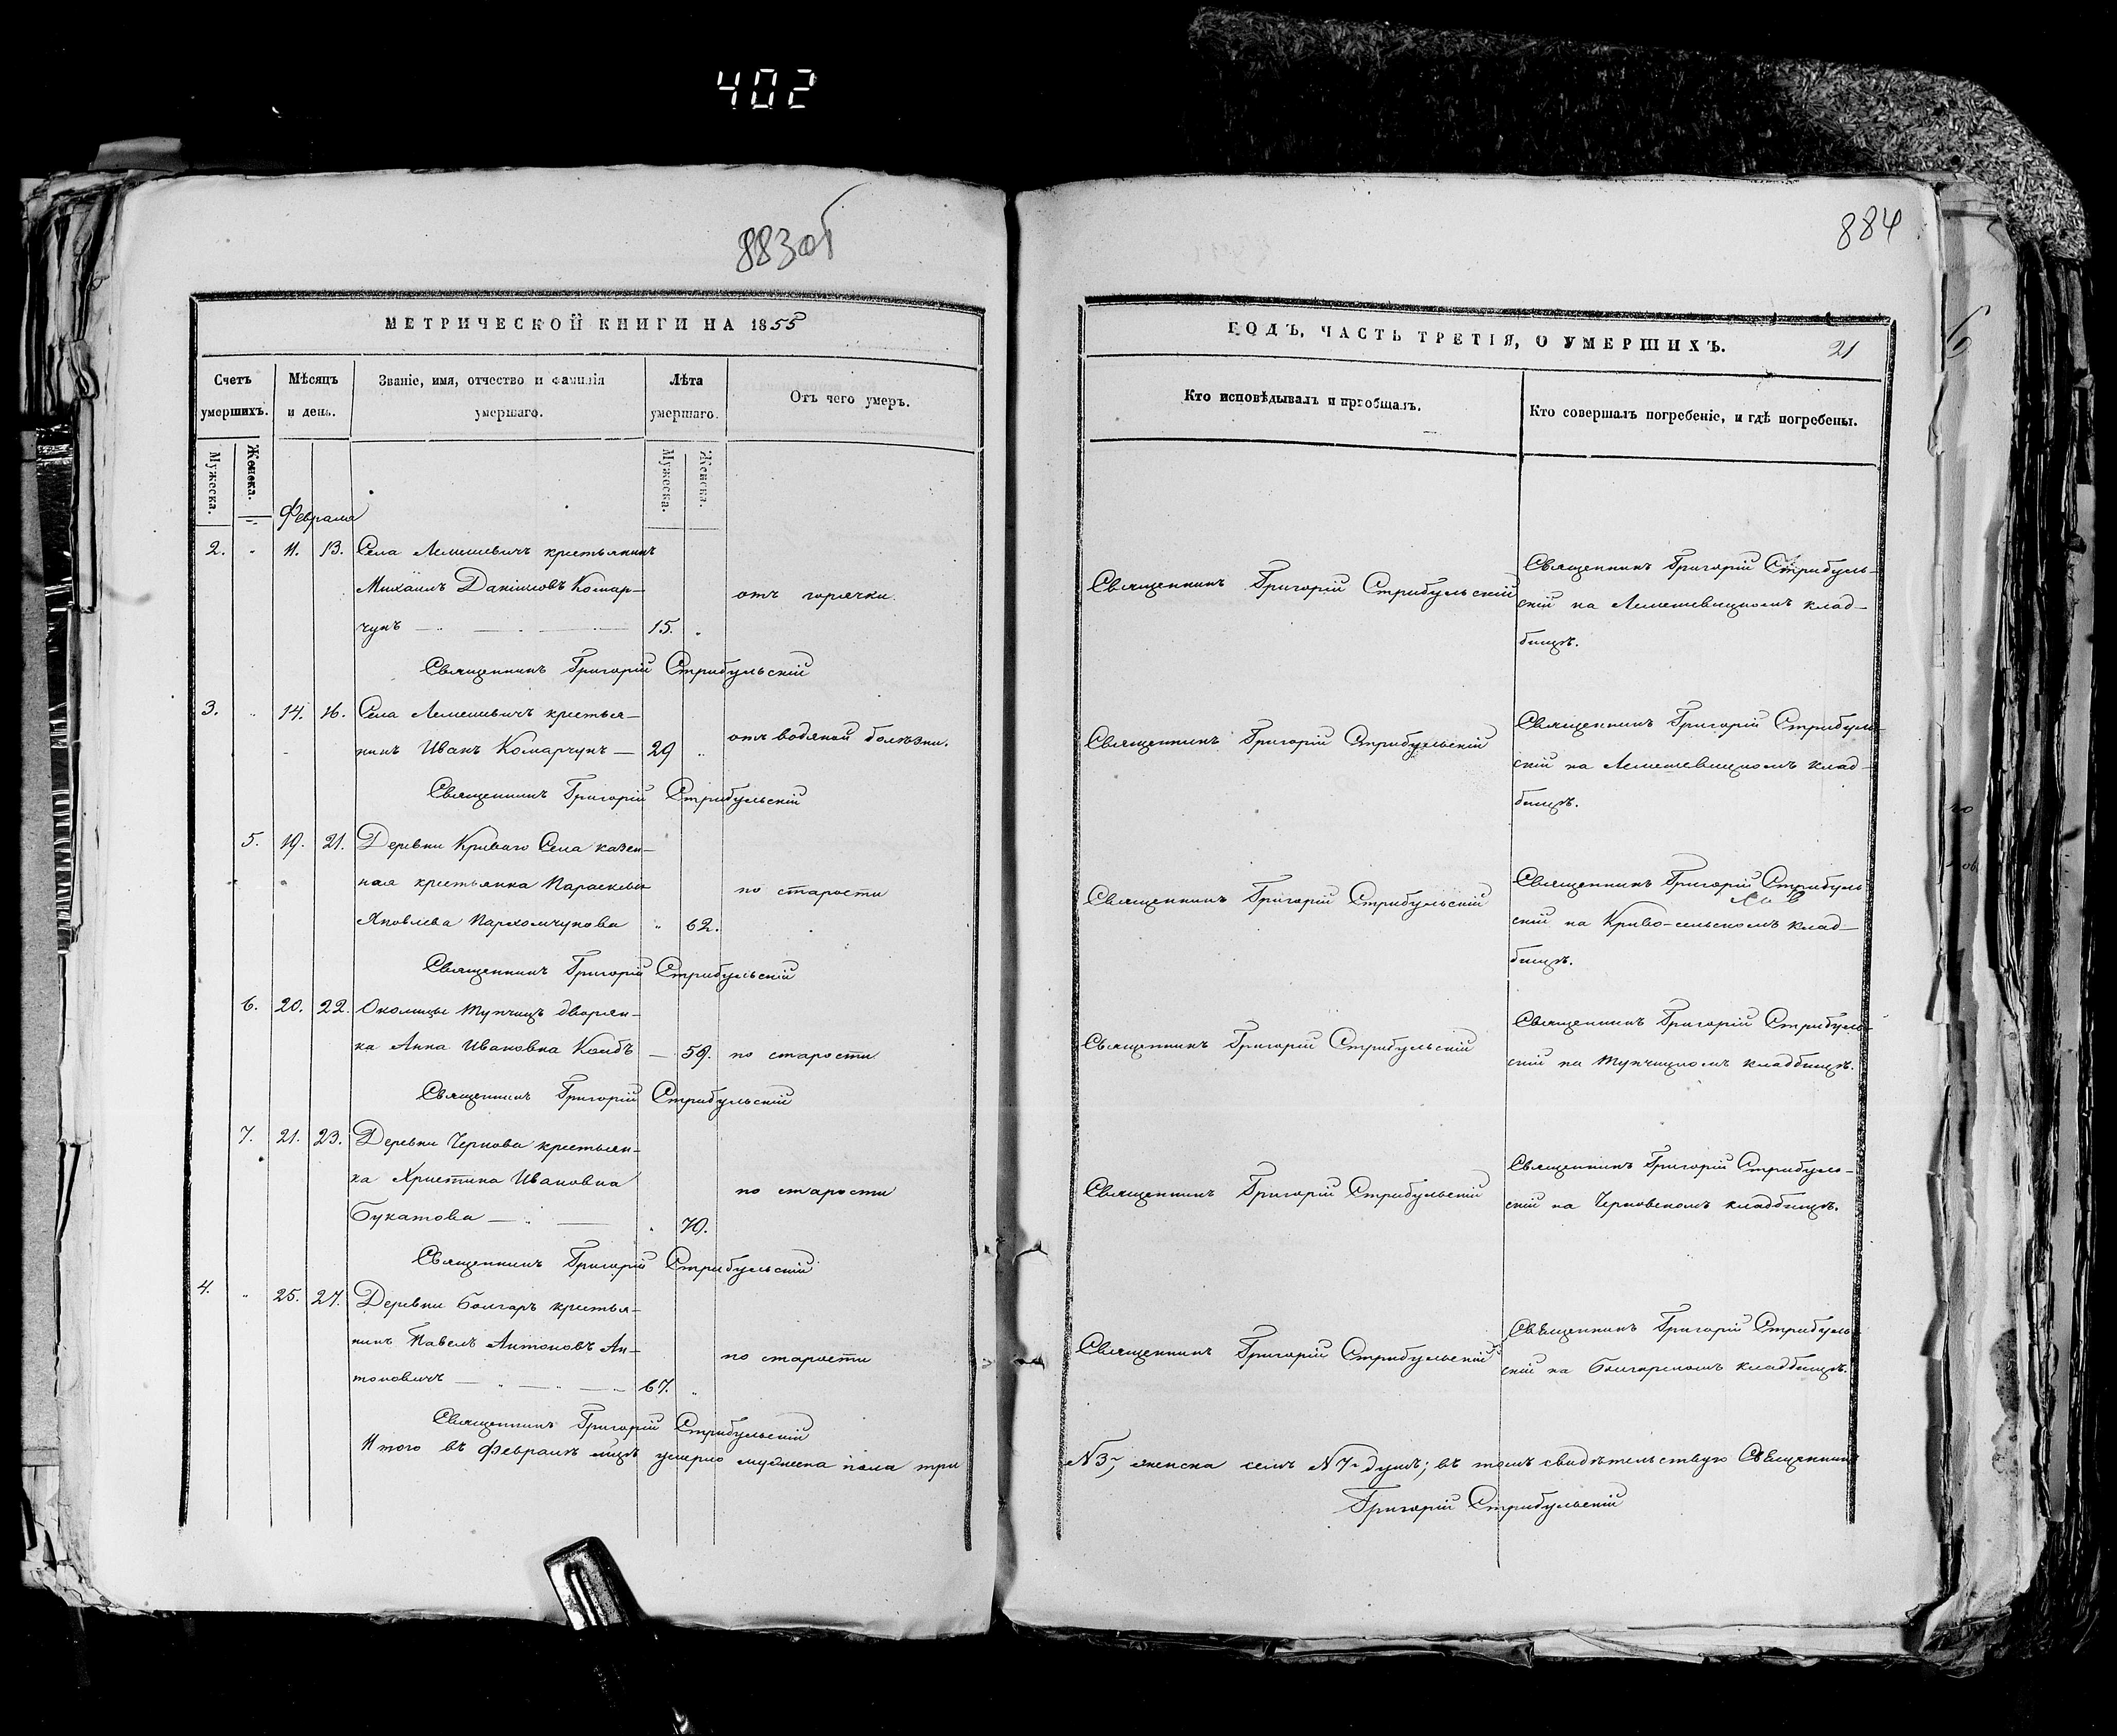 402
883об
МЕТРИЧЕСКОЙ КНИГИ НА 1855
Счетъ умершихъ.
Мѣсяцъ и день.
Званіе, имя, отчество и фамилія умершаго.
Лѣта умершаго.
Отъ чего умеръ.
Мужеска.
Женска.
Мужеска.
Женска.
Февраля
2. " 11. 13. Села Лемешевичъ крестьянинъ
Михаилъ Даніиловъ Комар-
отъ горячки.
чукъ 15. "
Священникъ Григорій Стрибульскій
3. " 14. 16. Села Лемешевичъ крестья-
нинъ Иванъ Комарчукъ — 29 " отъ водяной болѣзни.
Священникъ Григорій Стрибульскій
5. 19. 21. Деревни Криваго Села казен-
ная крестьянка Параскева
по старости
Яковлева Пархомчукова " 62.
Священникъ Григорій Стрибульскій
6. 20. 22. Околицы Тупчицъ дворян-
ка Анна Ивановна Колбъ — 59. по старости
Священникъ Григорій Стрибульскій
7. 21. 23. Деревни Чернова крестьян-
ка Христина Ивановна
по старости
Букатова 70.
Священникъ Григорій Стрибульскій
4. " 25. 27. Деревни Болгаръ крестья-
нинъ Павелъ Антоновъ Ан-
по старости
тоновичъ 67. "
Священникъ Григорій Стрибульскій
Итого въ Февралѣ мцѣ умерло мужеска пола три
884
ГОДЪ, ЧАСТЬ ТРЕТІЯ, О УМЕРШИХЪ.
21
Кто исповѣдывалъ и пріобщалъ.
Кто совершалъ погребеніе, и гдѣ погребены.
Священникъ Григорій Стрибульскій
Священникъ Григорій Стрибуль-
скій на Лемешевицкомъ клад-
бищѣ.
Священникъ Григорій Стрибульскій
Священникъ Григорій Стрибуль-
скій на Лемешевицкомъ клад-
бищѣ.
Священникъ Григорій Стрибульскій
Священникъ Григорій Стрибуль-
скій на Криво-сельскомъ клад-
бищѣ.
Священникъ Григорій Стрибульскій
Священникъ Григорій Стрибуль-
скій на Тупчицкомъ кладбищѣ.
Священникъ Григорій Стрибульскій
Священникъ Григорій Стрибуль-
скій на Черновскомъ кладбищѣ.
Священникъ Григорій Стрибульскій
Священникъ Григорій Стрибуль-
скій на Болгарскомъ кладбищѣ.
№3, женска семь №7 душъ; въ томъ свидѣтельствую Священникъ
Григорій Стрибульскій